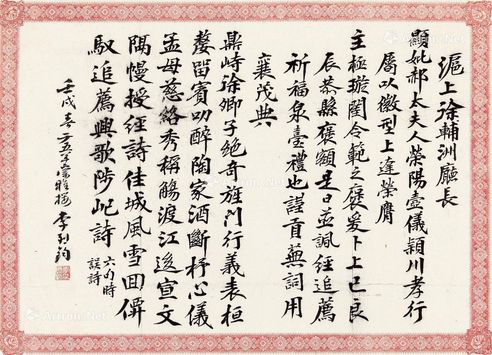 滬上徐輔洲廳長
顯妣郝太夫人榮陽壼儀潁川孝行
屬以徽型上達榮膺
主極璇閨令範之褒爰卜上巳良
辰恭縣褒額是日並諷經追薦
祈福泉臺禮也謹貢蕪詞用
襄茂典
鼎峙徐卿子絕奇旌門行義表桓
嫠留賓叨醉陶家酒斷杼心儀
孟母慈絡秀稱觴渡江逘宣文
隅幔授經詩佳城風雪回僻
馭追薦興歌陟屺詩
六句時誤詩
壬戌春二
李烈鈞